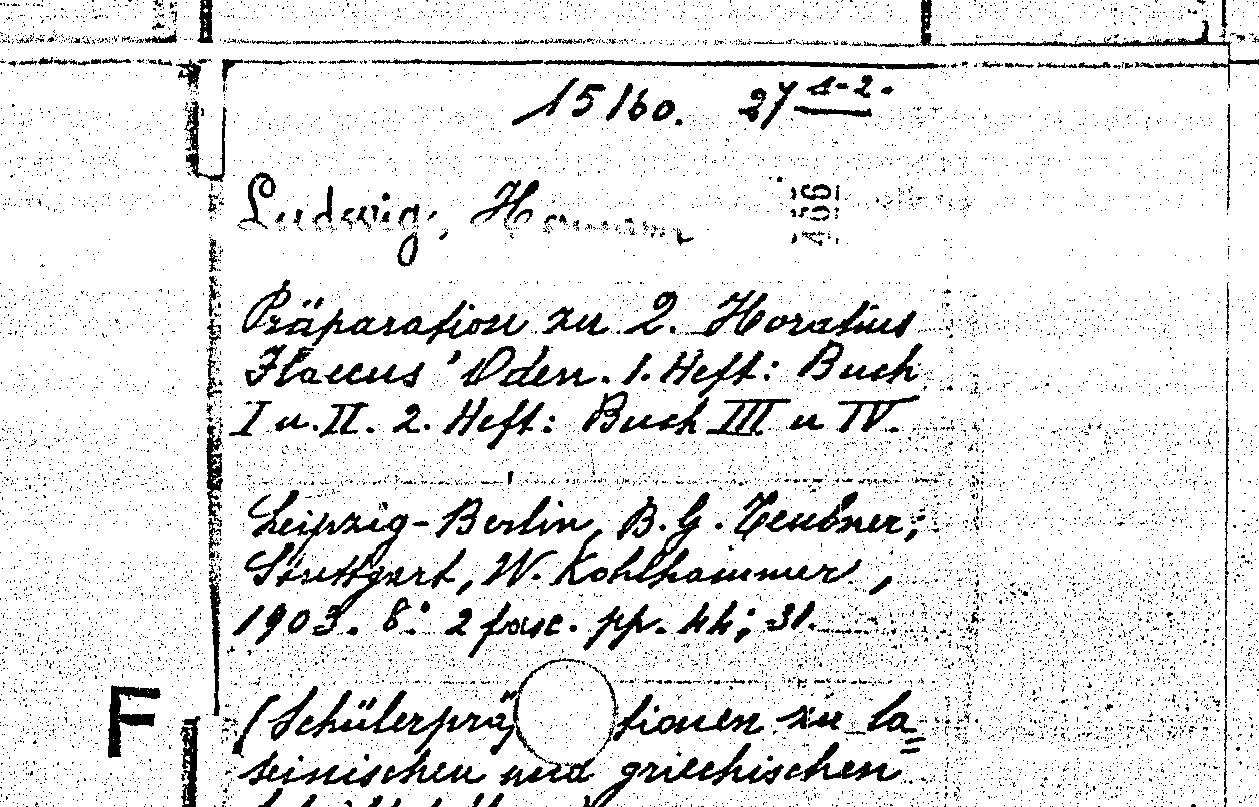 15160. 27 1-2.
Ludwig, Hermann
466
Präparation zu Q. Horatius
Flaccus' Oden. 1. Heft: Buch
I u. II. 2. Heft: Buch III u IV.
Leipzig-Berlin, B. G. Teubner;
Stuttgart, W. Kohlhammer,
1903. 8.° 2 fasc. pp. 44; 31.
(Schülerprä tionen zu la=
F
teinischen und griechischen